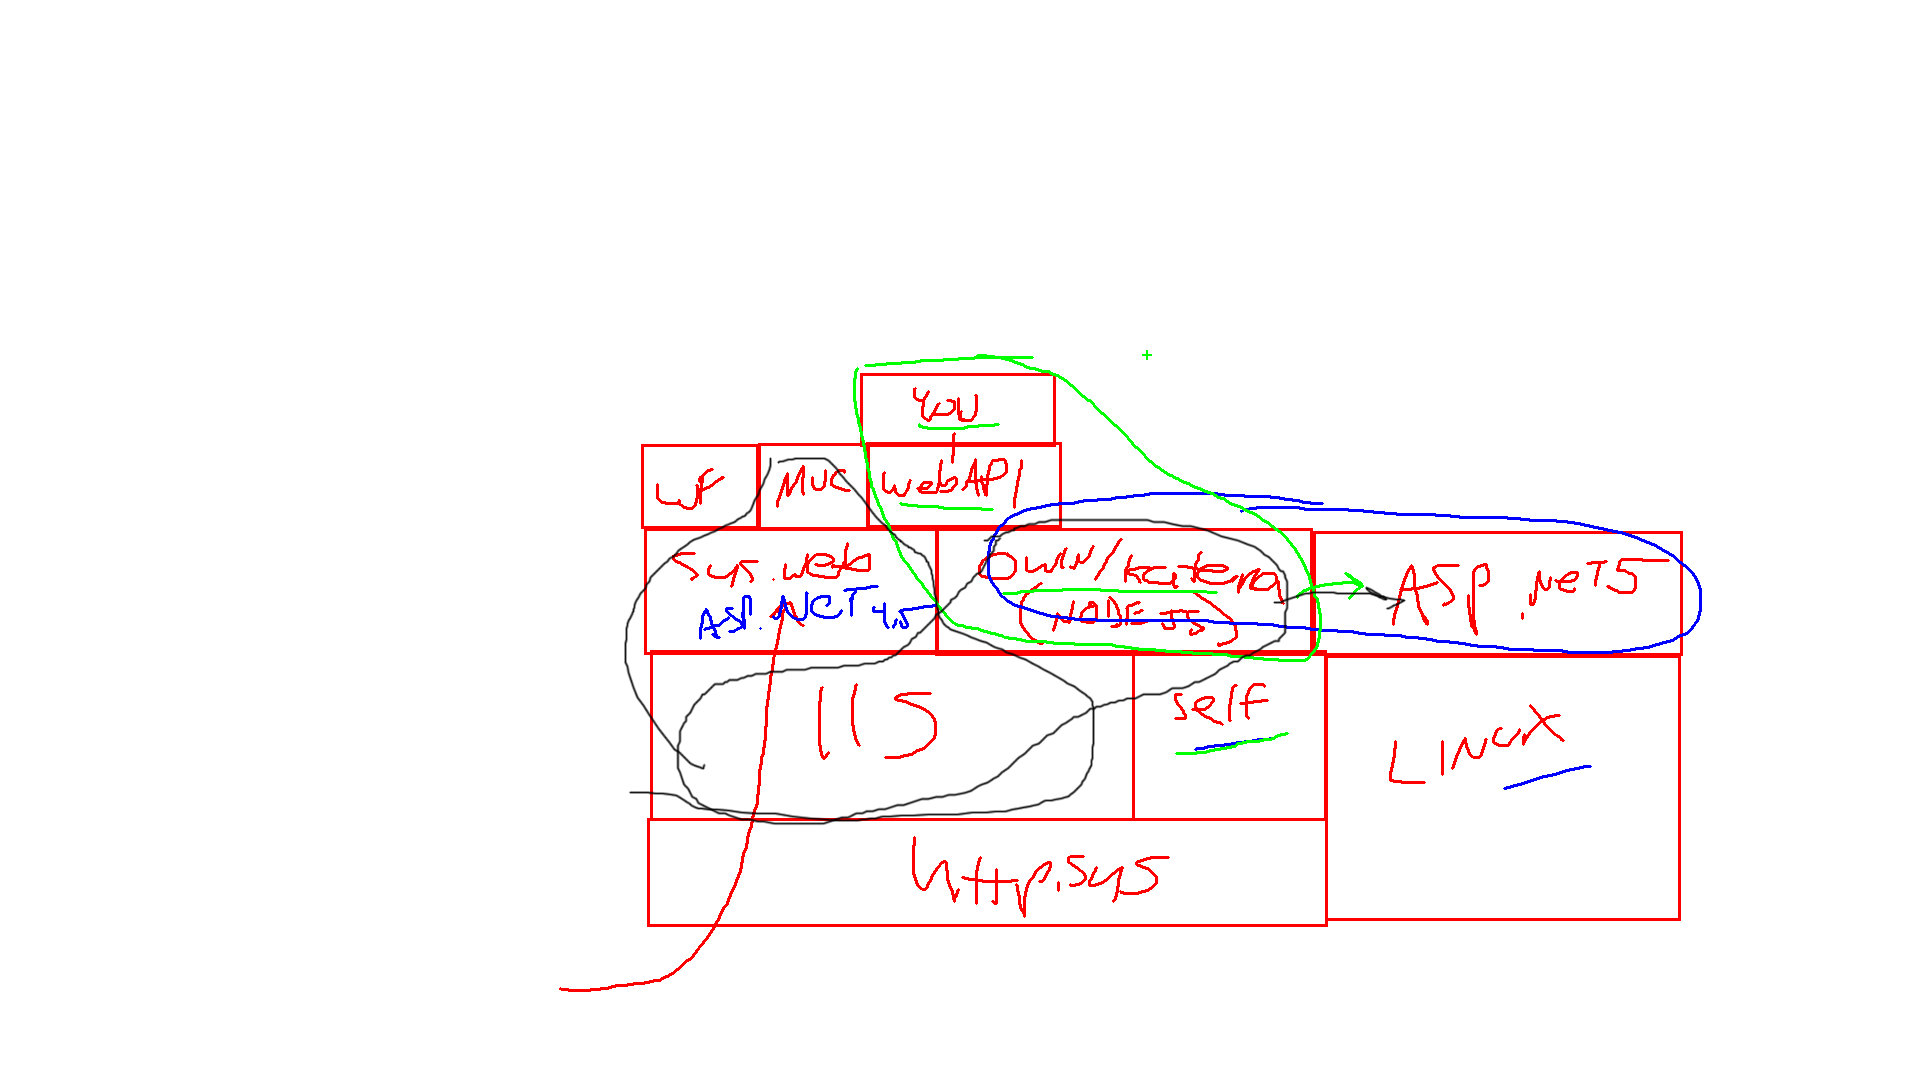 YOU
WF
MVC
WebAPI
Sys.Web
ASP.NET 4.5
OWIN/Katana
NODE JS
ASP.NET5
IIS
Self
LINUX
http.sys